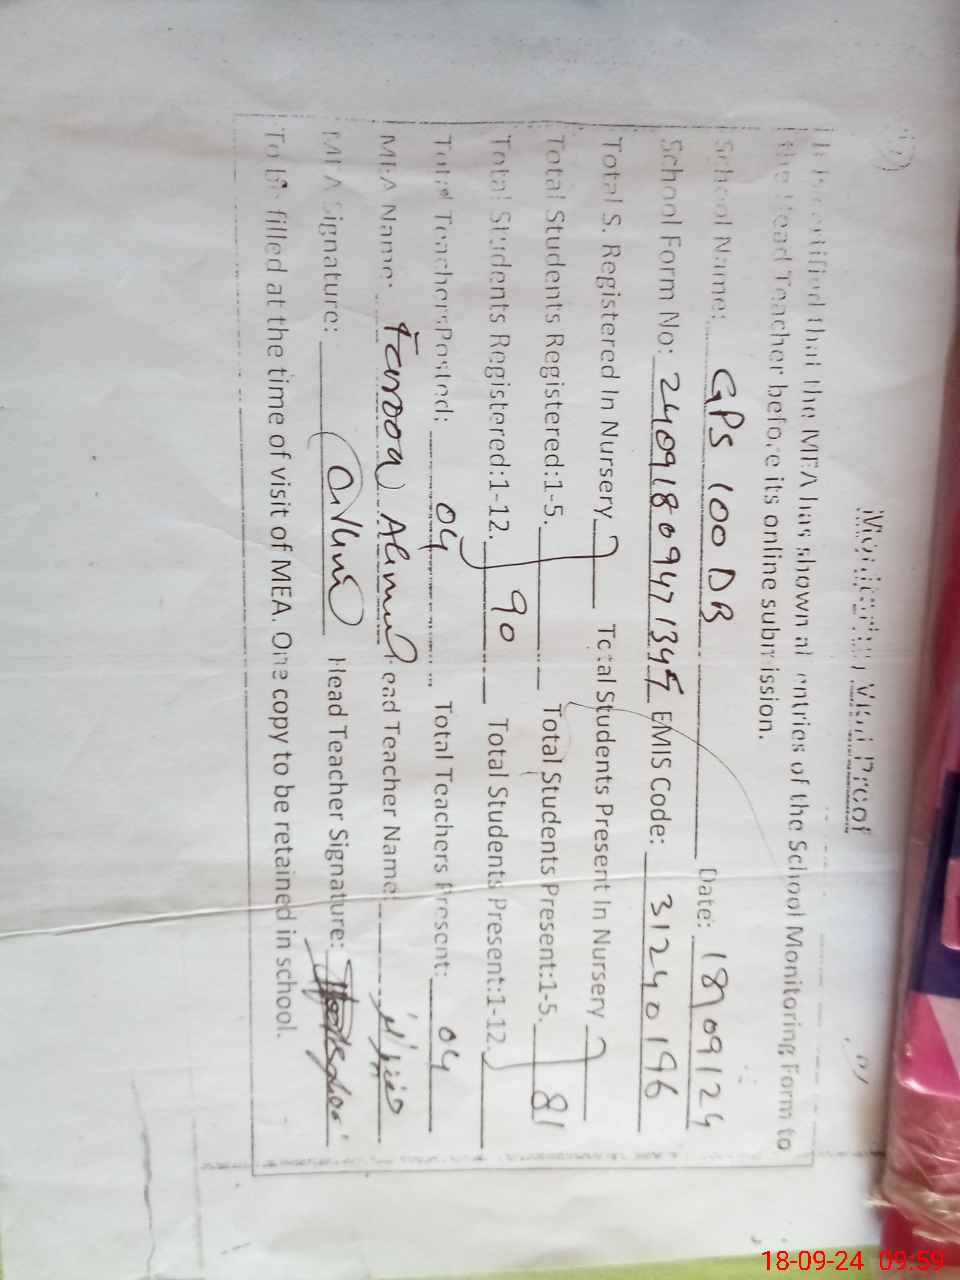 Monitoring Visit Proof
It is certified that the MEA has shown all entries of the School Monitoring Form to
the Head Teacher before its online submission.
School Name: GPS 100 DB Date: 18/09/24
School Form No: 240918094713 EMIS Code: 31240196
Total S. Registered In Nursery Total Students Present In Nursery
Total Students Registered:1-5. Total Students Present:1-5. 81
Total Students Registered:1-12. 90 Total Students Present:1-12.
Total Teachers Posted: 04 Total Teachers Present: 04
MEA Name: Farooq Ahmad Head Teacher Name:
MEA Signature: Head Teacher Signature:
To be filled at the time of visit of MEA. One copy to be retained in school.
18-09-24 09:59